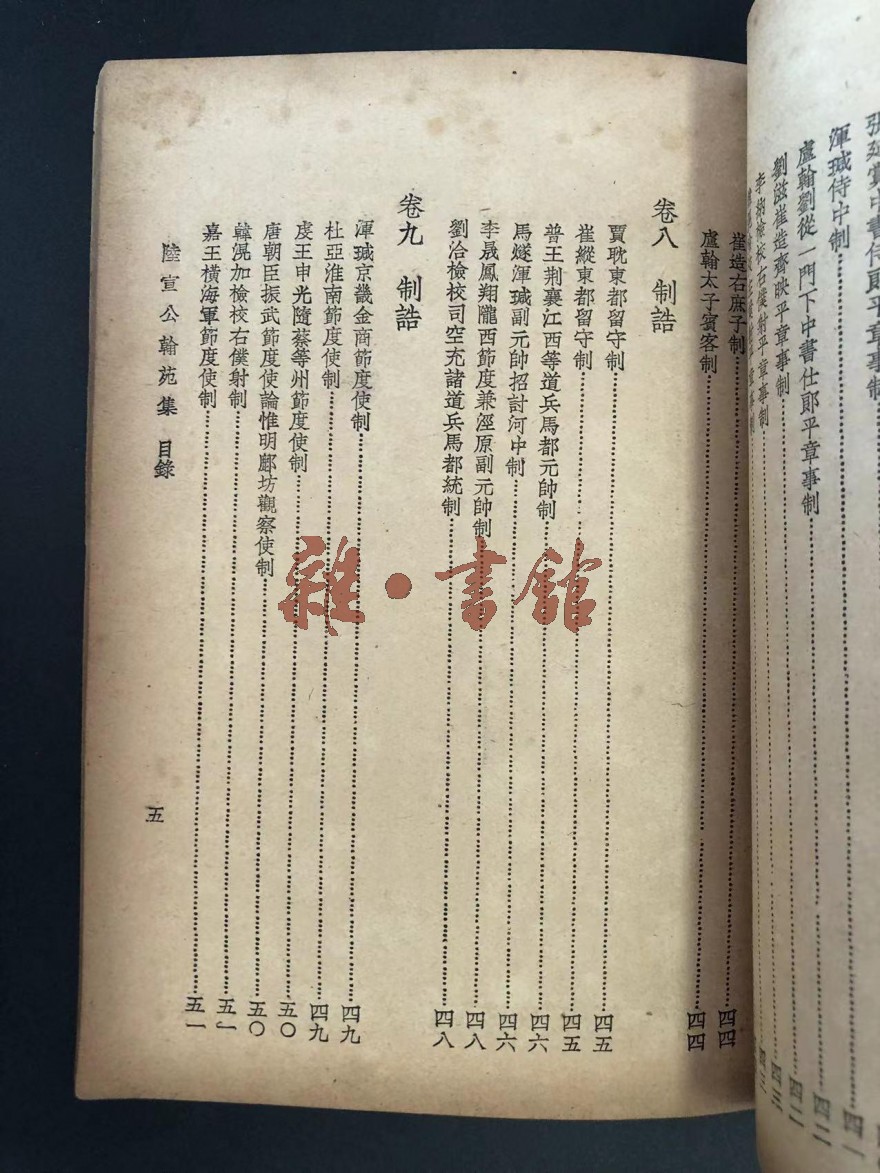 渾瑊侍中制
盧翰劉從一門下中書仕郎平章事制 四二
劉滋崔造齊映平章事制 四二
崔造右庶子制 四四
盧翰太子賓客制 四四
卷八 制誥
賈耽東都留守制 四五
崔縱東都留守制 四五
普王荆襄江西等道兵馬都元帥制 四六
馬燧渾瑊副元帥招討河中制 四六
李晟鳳翔隴西節度兼涇原副元帥制 四八
劉洽檢校司空充諸道兵馬都統制 四八
卷九 制誥
渾瑊京畿金商節度使制 四九
杜亞淮南節度使制 四九
虔王申光隨蔡等州節度使制 五〇
唐朝臣振武節度使論惟明鄜坊觀察使制 五〇
韓滉加檢校右僕射制 五一
嘉王橫海軍節度使制 五一
陸宣公翰苑集 目錄 五
雜·書館